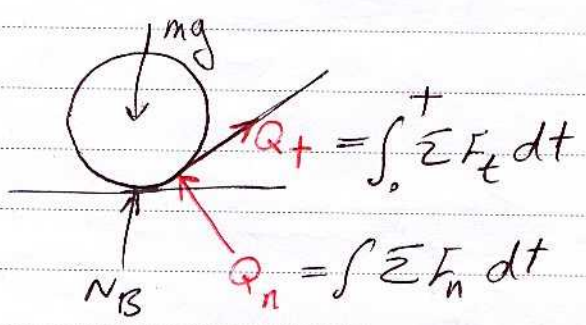 mg
Q_t = ∫_0^t Σ F_t dt
Q_n = ∫ Σ F_n dt
N_B